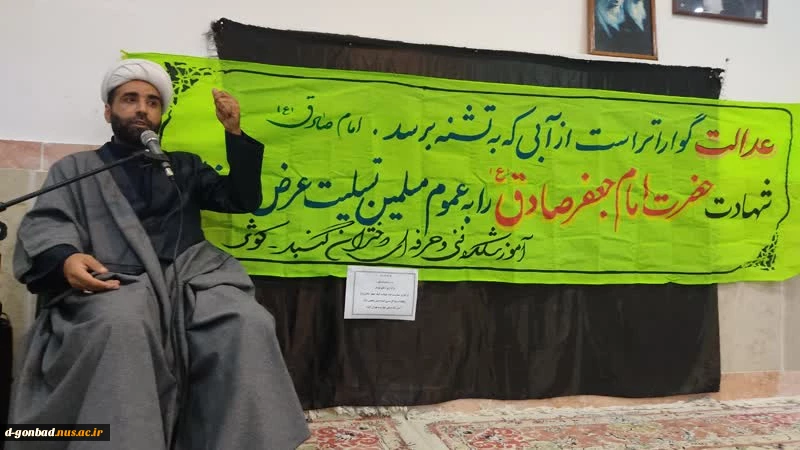 عدالت گواراتر است از آبی که به تشنه برسد . امام صادق (ع)
شهادت حضرت امام جعفر صادق (ع) را به عموم مسلمین تسلیت عرض
آموزشکده فنی و حرفه ای دختران گنبد
d-gonbad.nus.ac.ir